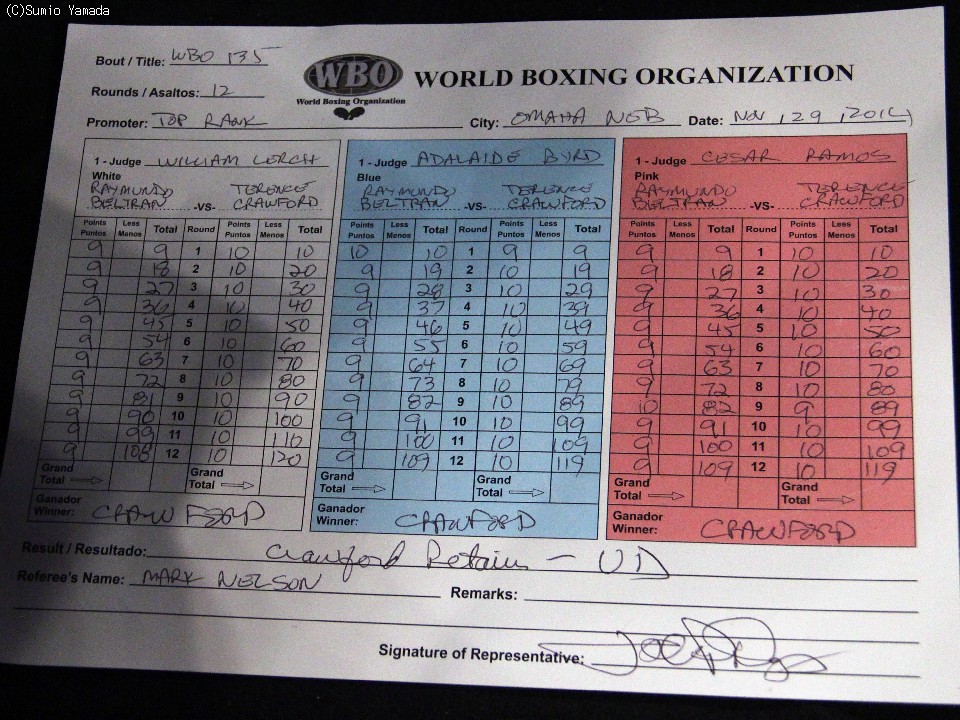 (C)Sumio Yamada
Bout / Title: WBO 135
WBO
WORLD BOXING ORGANIZATION
World Boxing Organization
Rounds / Asaltos: 12
Promoter: TOP RANK City: OMAHA NEB Date: NOV 29, 2014
1 - Judge WILLIAM LERCH 1 - Judge ADALAIDE BYRD 1 - Judge CESAR RAMOS
White Blue Pink
RAYMUNDO TERENCE RAYMUNDO TERENCE RAYMUNDO TERENCE
BELTRAN -VS- CRAWFORD BELTRAN -VS- CRAWFORD BELTRAN -VS- CRAWFORD
Points Less Total Round Points Less Total Points Less Total Round Points Less Total Points Less Total Round Points Less Total
Puntos Menos Puntos Menos Puntos Menos Puntos Menos Puntos Menos Puntos Menos
9 9 1 10 10 10 10 1 9 9 9 9 1 10 10
9 18 2 10 20 9 19 2 10 19 9 18 2 10 20
9 27 3 10 30 9 28 3 10 29 9 27 3 10 30
9 36 4 10 40 9 37 4 10 39 9 36 4 10 40
9 45 5 10 50 9 46 5 10 49 9 45 5 10 50
9 54 6 10 60 9 55 6 10 59 9 54 6 10 60
9 63 7 10 70 9 64 7 10 69 9 63 7 10 70
9 72 8 10 80 9 73 8 10 79 9 72 8 10 80
9 81 9 10 90 9 82 9 10 89 10 82 9 9 89
9 90 10 10 100 9 91 10 10 99 9 91 10 10 99
9 99 11 10 110 9 100 11 10 109 9 100 11 10 109
9 108 12 10 120 9 109 12 10 119 9 109 12 10 119
Grand Grand Grand Grand Grand Grand
Total Total Total Total Total Total
Ganador Ganador Ganador
Winner: CRAWFORD Winner: CRAWFORD Winner: CRAWFORD
Result / Resultado: Crawford Retains - UD
Referee's Name: MARK NELSON Remarks:
Signature of Representative: